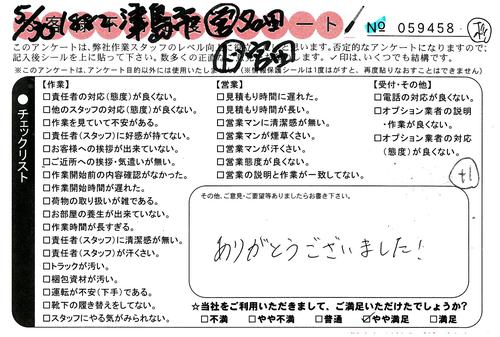 5/30
津島市
ート!
№ 059458
このアンケートは、弊社作業スタッフのレベル向
思います。否定的なアンケートになりますので、
記入後シールを上に貼って下さい。数多くの正直な
✓印は、いくつでも結構です。
※このアンケートは、アンケート目的以外には使用いたしま
(情報保護シールは1度はがすと、再度貼りなおすことはできません)
チェックリスト
【作業】
□責任者の対応(態度)が良くない。
□他のスタッフの対応(態度)が良くない。
□作業を見ていて不安がある。
□責任者(スタッフ)に好感が持てない。
□お客様への挨拶が出来ていない。
□ご近所への挨拶・気遣いが無い。
□作業開始前の内容確認がなかった。
□作業開始時間が遅れた。
□荷物の取り扱いが雑である。
□お部屋の養生が出来ていない。
□作業時間が長すぎる。
□責任者(スタッフ)に清潔感が無い。
□責任者(スタッフ)が汗くさい。
□トラックが汚い。
□梱包資材が汚い。
□運転が不安(下手)である。
□靴下の履き替えをしてない。
□スタッフにやる気がみられない。
【営業】
□見積もり時間に遅れた。
□見積もり時間が長い。
□営業マンに清潔感が無い。
□営業マンが煙草くさい。
□営業マンが汗くさい。
□営業態度が良くない。
□営業の説明と作業が一致してない。
【受付・その他】
□電話の対応が良くない。
□オプション業者の説明
・作業が良くない。
□オプション業者の対応
(態度)が良くない。
その他、ご意見・ご要望等ありましたらお書き下さい。
ありがとうございました!
☆当社をご利用いただきまして、ご満足いただけたでしょうか?
□不満 □やや不満 □普通 ☑やや満足 □満足